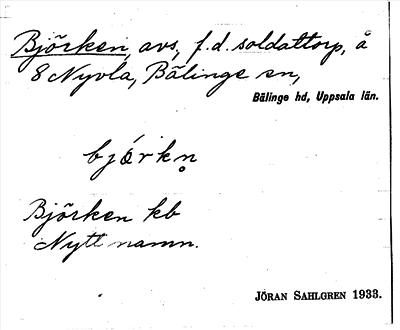 Björken, avs, f.d. soldattorp, å
8 Nyvla, Bälinge sn,
Bälinge hd, Uppsala län.
bjǿrkn̥
Björken kb
Nytt namn.
JÖRAN SAHLGREN 1933.